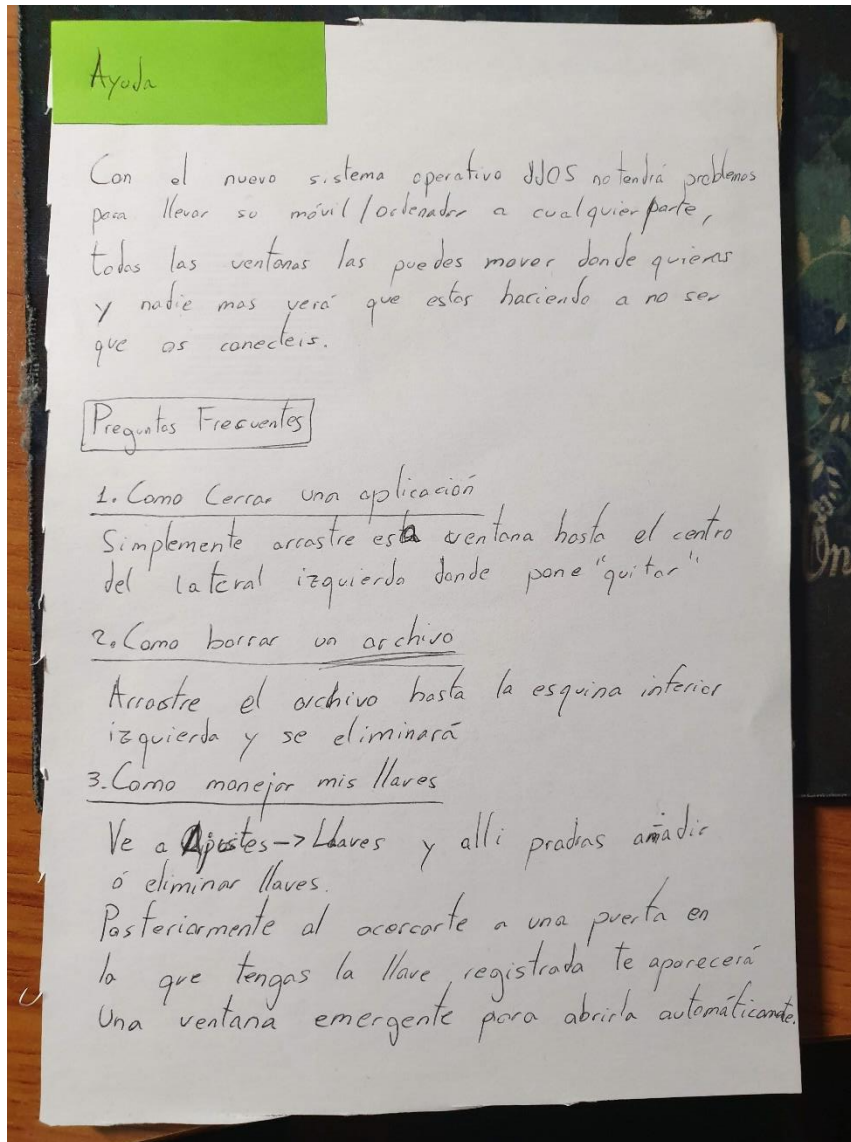 Ayuda
Con el nuevo sistema operativo JJOS no tendrá problemas
para llevar su móvil/ordenador a cualquier parte,
todas las ventanas las puedes mover donde quieras
y nadie mas verá que estas haciendo a no ser
que os conecteis.
Preguntas Frecuentes
1. Como Cerrar una aplicación
Simplemente arrastre esta ventana hasta el centro
del lateral izquierda donde pone "quitar"
2. Como borrar un archivo
Arrastre el archivo hasta la esquina inferior
izquierda y se eliminará
3. Como manejar mis llaves
Ve a Ajustes -> Llaves y alli pradras añadir
ó eliminar llaves.
Posteriormente al acercarte a una puerta en
la que tengas la llave registrada te aparecerá
Una ventana emergente para abrirla automáticamente.
On